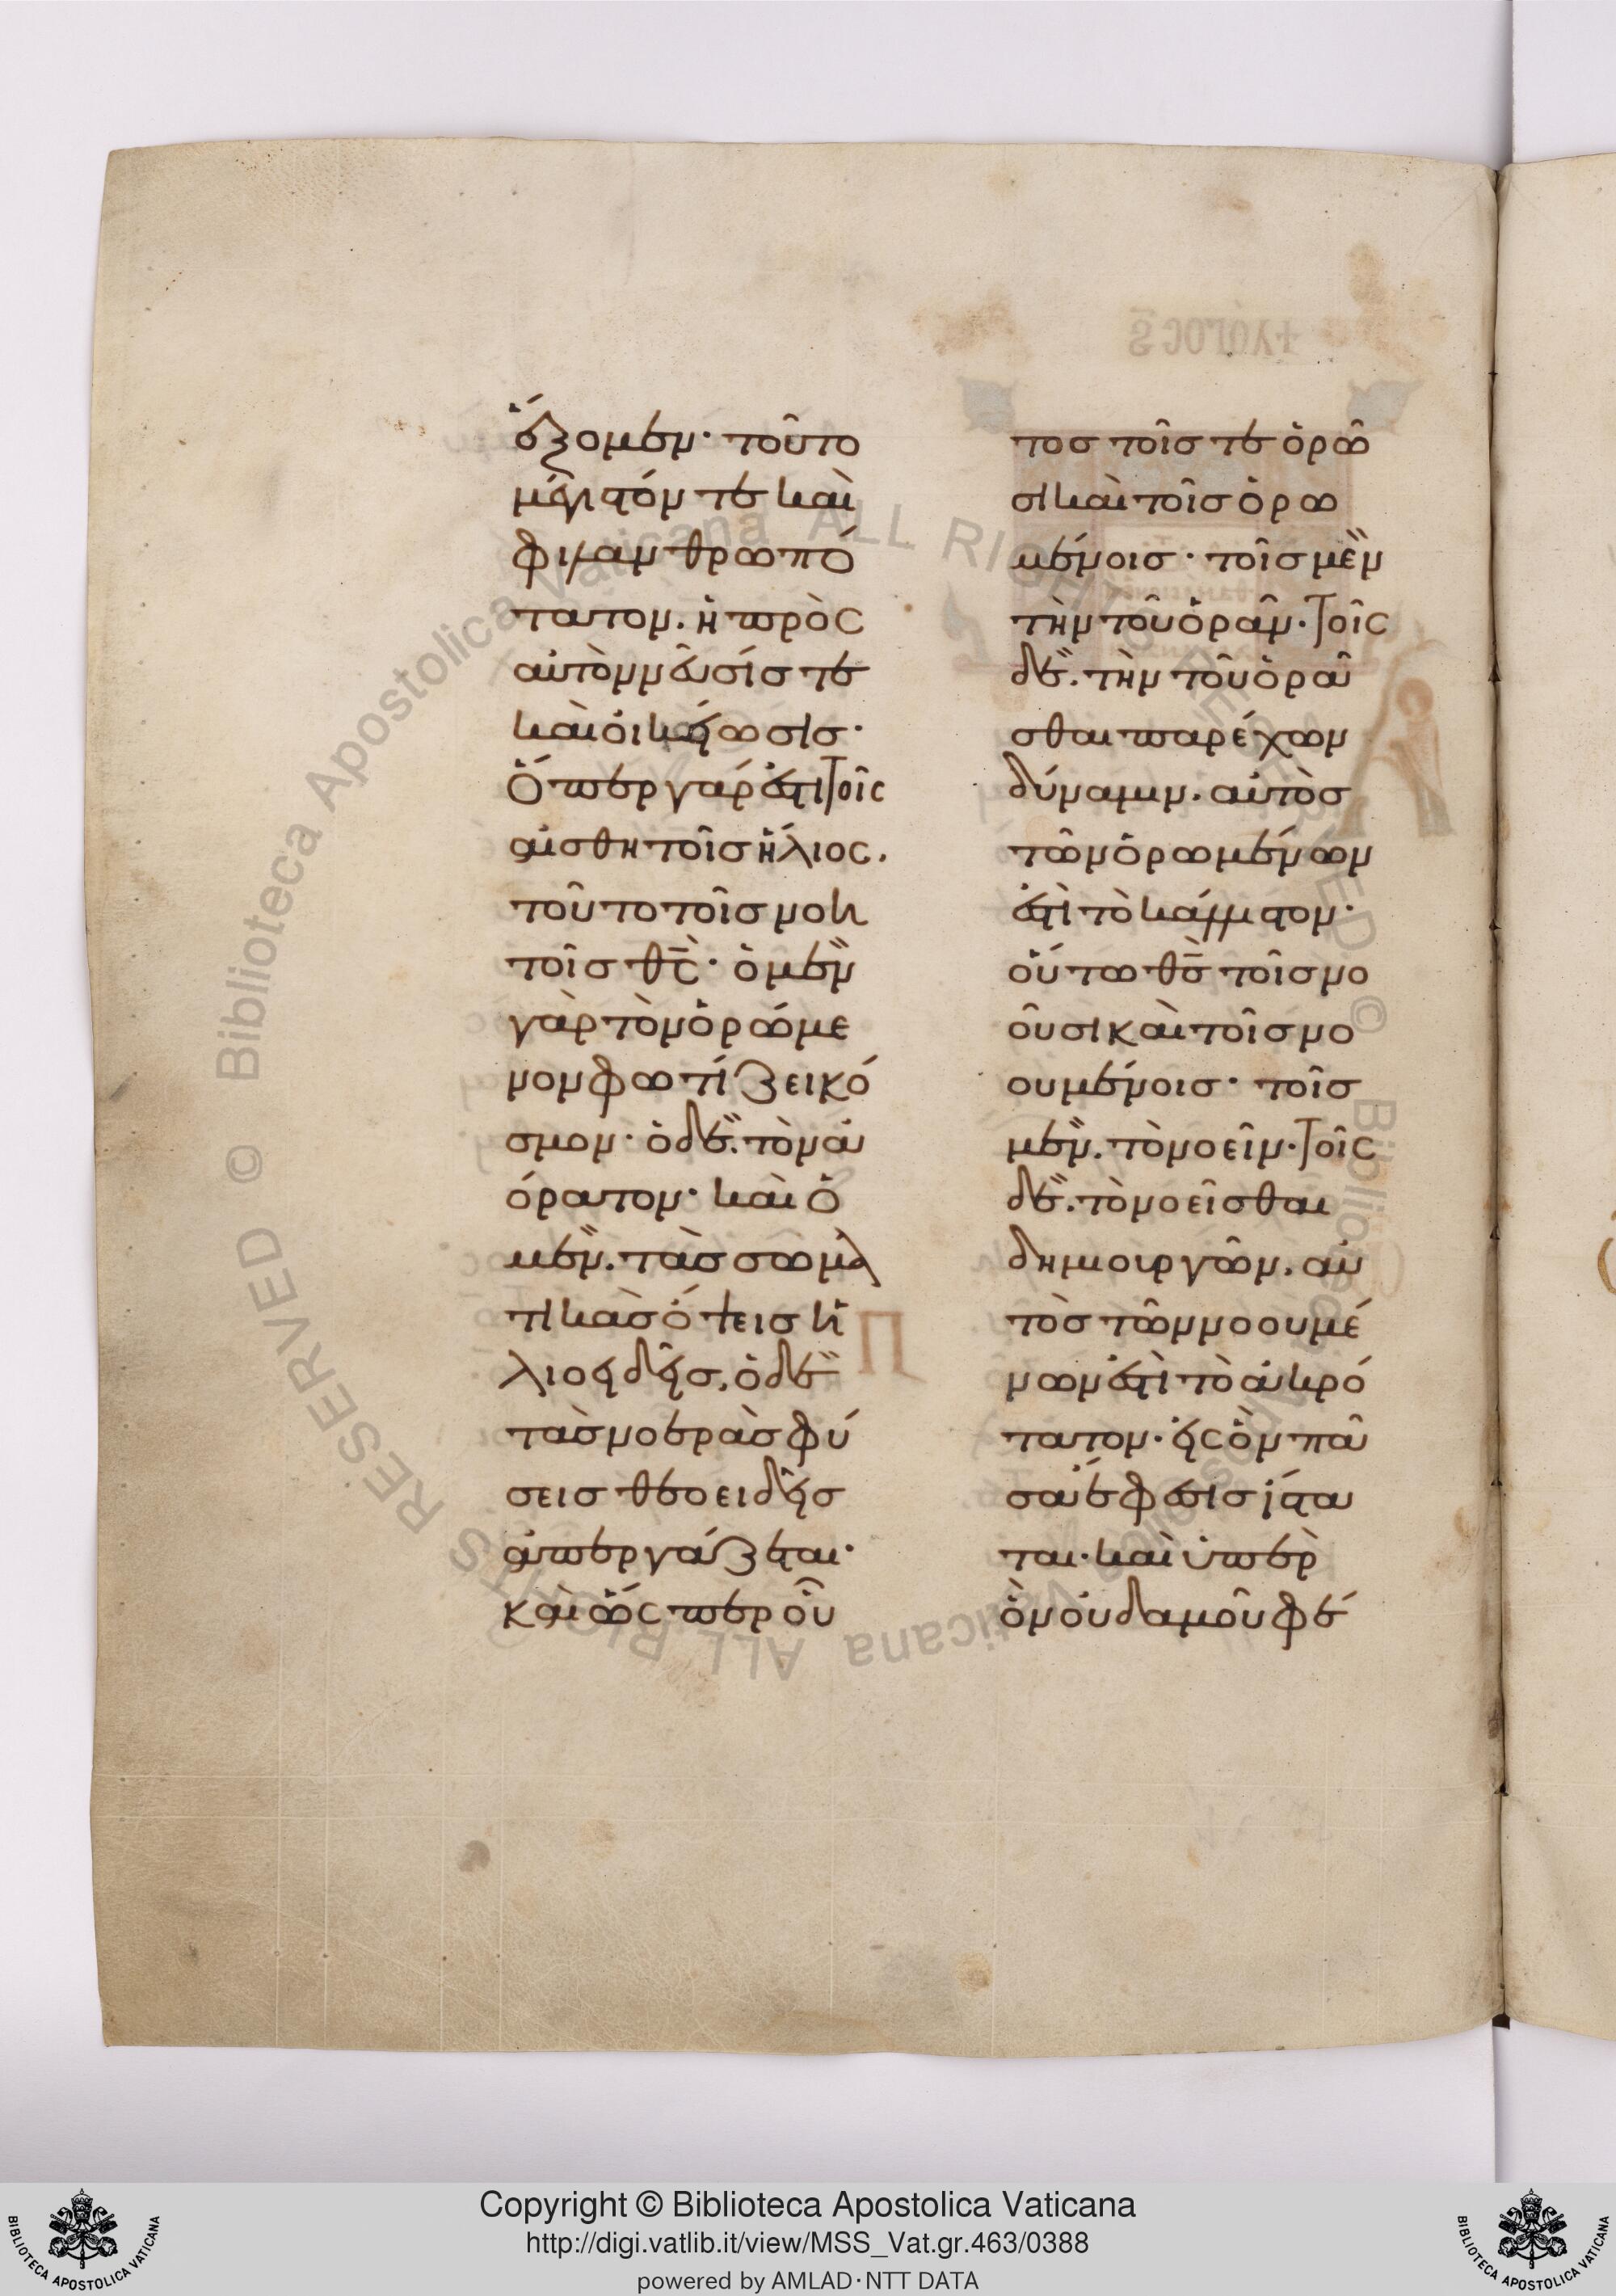 ἕξομεν· τοῦτο
μέγιστόν τε καὶ
φιλανθρωπό
τατον. ἡ πρὸς
αὐτὸν νεῦσίς τε
καὶ οἰκείωσις·
Ὅπερ γάρ ἐστι τοῖς
αἰσθητοῖς ἥλιος.
τοῦτο τοῖς νοη
τοῖς θς̄· ὁ μὲν
γὰρ τὸν ὁρώμε
νον φωτίζει κό
σμον· ὁ δὲ. τὸν ἀ
όρατον· καὶ ὁ
μὲν. τὰς σωμα
τικὰς ὄψεις ἡ
λιοειδεῖς. ὁ δὲ
τὰς νοερὰς φύ
σεις θεοειδεῖς
ἀπεργάζεται·
καὶ ὥσπερ οὗ
τος τοῖς τε ὁρῶ
σι καὶ τοῖς ὁρω
μένοις· τοῖς μὲν
τὴν τοῦ ὁρᾶν· τοῖς
δὲ. τὴν τοῦ ὁρᾶ
σθαι παρέχων
δύναμιν. αὐτὸς
τῶν ὁρωμένων
ἐστὶ τὸ κάλλιστον·
οὕτω θς̄ τοῖς νο
οῦσι καὶ τοῖς νο
ουμένοις· τοῖς
μὲν. τὸ νοεῖν· τοῖς
δὲ. τὸ νοεῖσθαι
δημιουργῶν. αὐ
τὸς τῶν νοουμέ
νων ἐστὶ τὸ ἀκρό
τατον· εἰς ὃν πᾶ
σα ἔφεσις ἵστα
ται· καὶ ὑπὲρ
ὃν οὐδαμοῦ φέ
Copyright © Biblioteca Apostolica Vaticana
http://digi.vatlib.it/view/MSS_Vat.gr.463/0388
powered by AMLAD·NTT DATA
BIBLIOTECA APOSTOLICA VATICANA
BIBLIOTECA APOSTOLICA VATICANA
© Biblioteca Apostolica Vaticana ALL RIGHTS RESERVED © Biblioteca Apostolica Vaticana ALL RIGHTS RESERVED